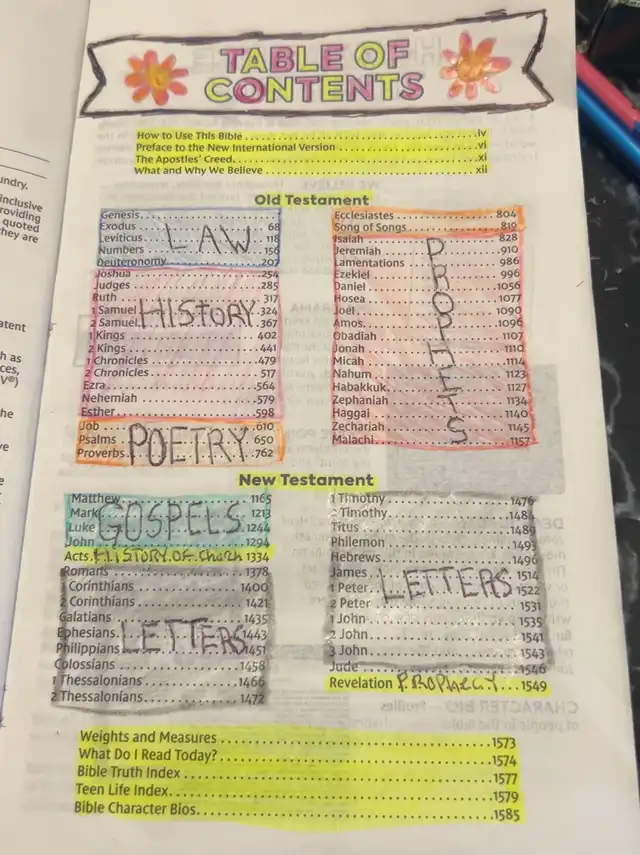 TABLE OF
CONTENTS
How to Use This Bible iv
Preface to the New International Version vi
The Apostles' Creed xi
What and Why We Believe xii
Old Testament
Genesis
Exodus 68
Leviticus 118
Numbers 156
Deuteronomy 207
LAW
Joshua 254
Judges 285
Ruth 317
1 Samuel 324
2 Samuel 367
1 Kings 402
2 Kings 441
1 Chronicles 479
2 Chronicles 517
Ezra 564
Nehemiah 579
Esther 598
HISTORY
Job 610
Psalms 650
Proverbs 762
POETRY
Ecclesiastes 804
Song of Songs 819
Isaiah 828
Jeremiah 910
Lamentations 986
Ezekiel 996
Daniel 1056
Hosea 1077
Joel 1090
Amos 1096
Obadiah 1107
Jonah 1110
Micah 1114
Nahum 1123
Habakkuk 1127
Zephaniah 1134
Haggai 1140
Zechariah 1145
Malachi 1157
PROPHETS
New Testament
Matthew 1165
Mark 1213
Luke 1244
John 1294
GOSPELS
Acts HISTORY OF CHURCH 1334
Romans 1378
1 Corinthians 1400
2 Corinthians 1421
Galatians 1435
Ephesians 1443
Philippians 1451
Colossians 1458
1 Thessalonians 1466
2 Thessalonians 1472
LETTERS
1 Timothy 1476
Timothy
Titus 1489
Philemon 1493
Hebrews 1496
James 1514
1 Peter 1522
2 Peter 1531
1 John 1535
2 John 1541
3 John 1543
Jude 1546
LETTERS
Revelation PROPHECY 1549
Weights and Measures 1573
What Do I Read Today? 1574
Bible Truth Index 1577
Teen Life Index 1579
Bible Character Bios 1585